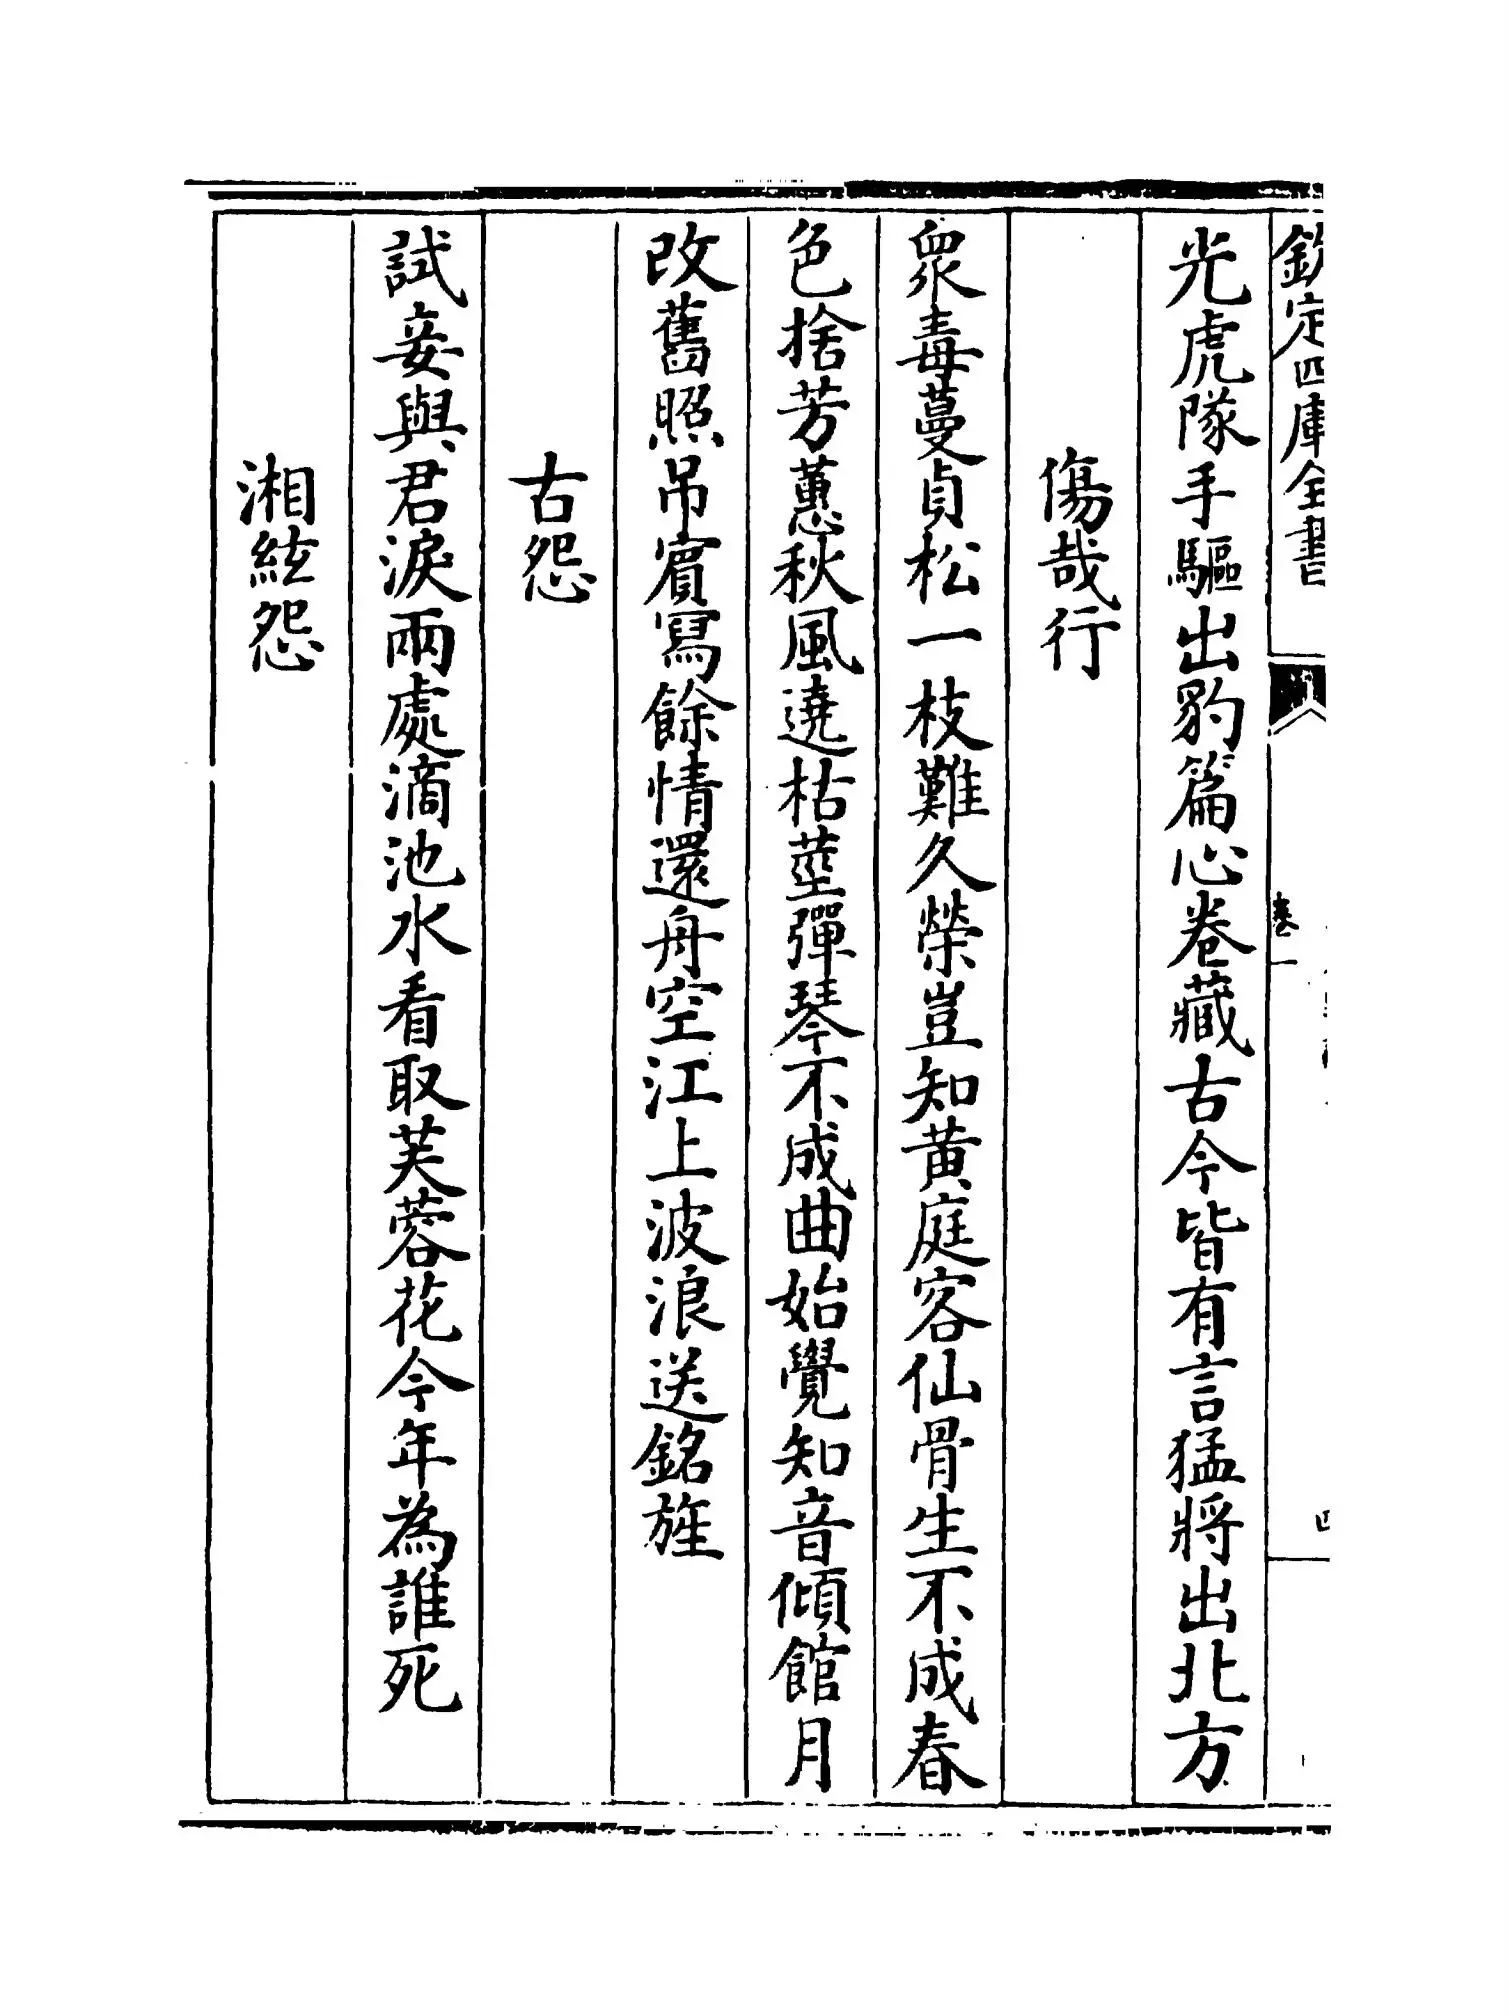 欽定四庫全書
卷一
四
光虎隊手驅出豹篇心卷藏古今皆有言猛將出北方
傷哉行
衆毒蔓貞松一枝難久榮豈知黄庭客仙骨生不成春
色捨芳蕙秋風遶枯莖彈琴不成曲始覺知音傾館月
改舊照吊賓寫餘情還舟空江上波浪送銘旌
古怨
試妾與君淚兩處滴池水看取芙蓉花今年為誰死
湘絃怨